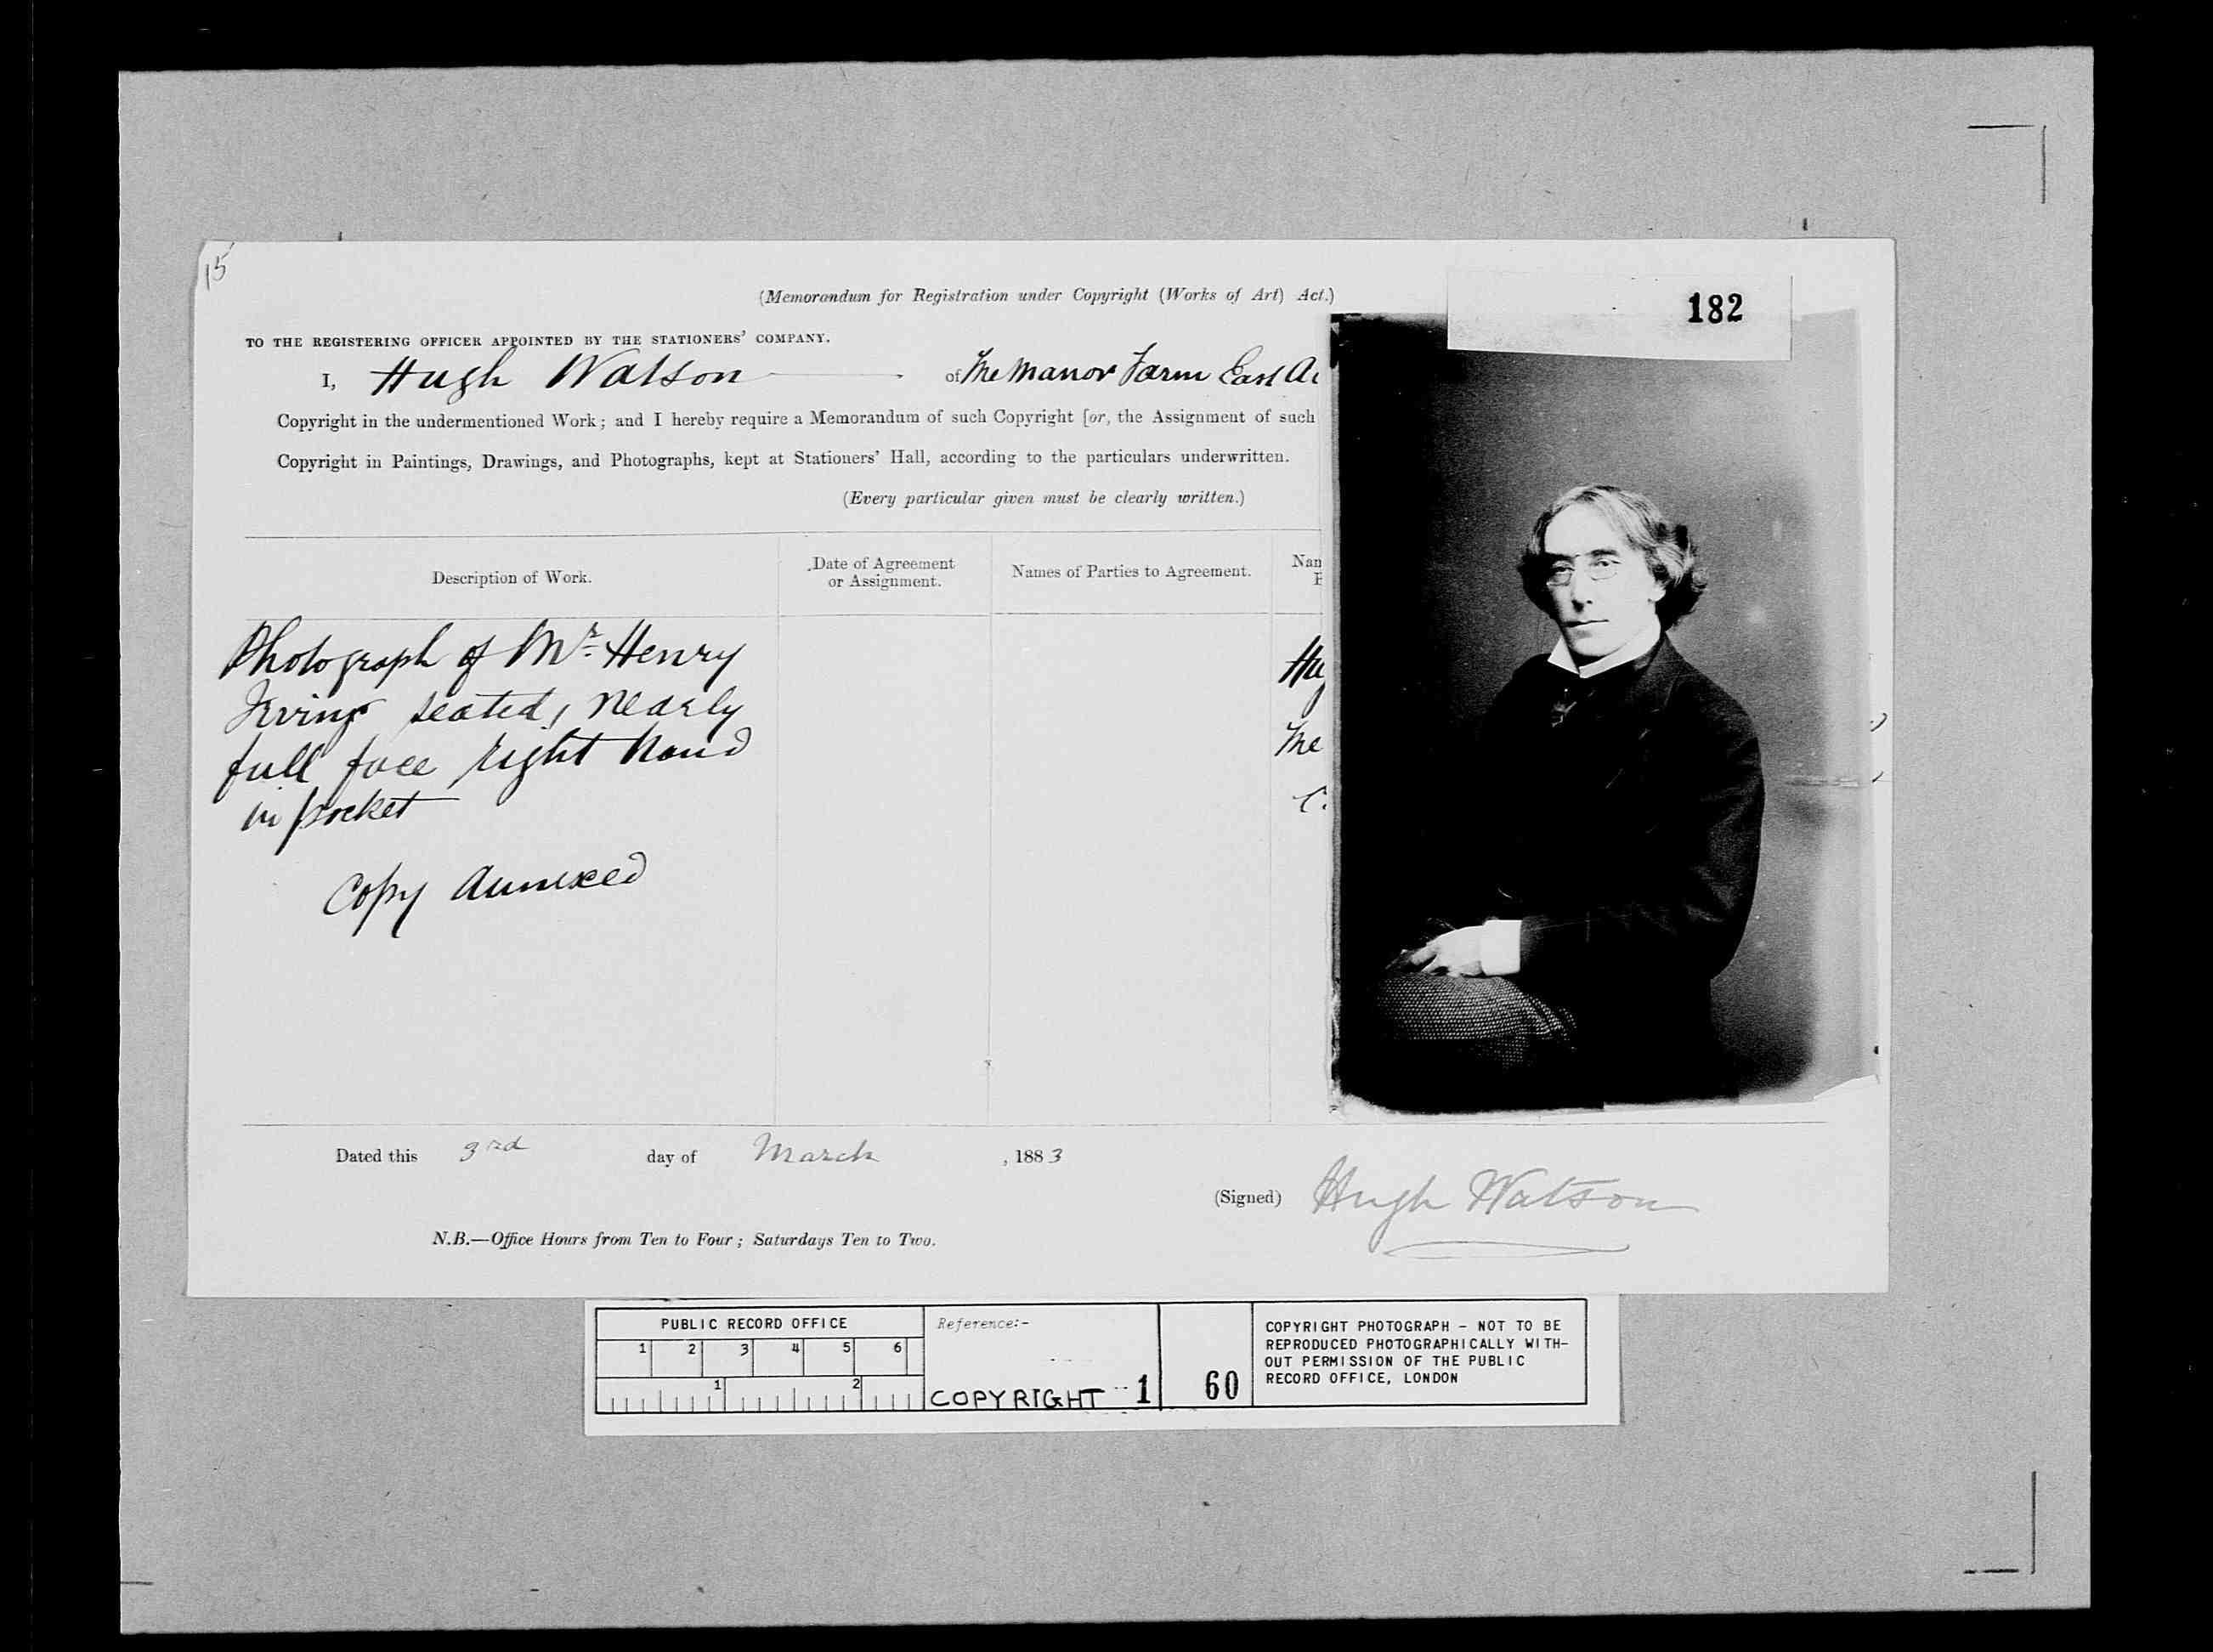 15
(Memorandum for Registration under Copyright (Works of Art) Act.)
182
TO THE REGISTERING OFFICER APPOINTED BY THE STATIONERS' COMPANY.
I, Hugh Watson of The Manor Farm East
Copyright in the undermentioned Work; and I hereby require a Memorandum of such Copyright [or, the Assignment of such
Copyright in Paintings, Drawings, and Photographs, kept at Stationers' Hall, according to the particulars underwritten.
(Every particular given must be clearly written.)
Description of Work.
Date of Agreement
or Assignment.
Names of Parties to Agreement.
Nan
Photograph of Mr. Henry
Irving seated, nearly
full face right hand
in pocket
Copy annexed
Hu
The
Dated this 3rd day of March, 1883
(Signed) Hugh Watson
N.B.—Office Hours from Ten to Four; Saturdays Ten to Two.
PUBLIC RECORD OFFICE
1 2 3 4 5 6
1 2
Reference:-
COPYRIGHT 1 60
COPYRIGHT PHOTOGRAPH - NOT TO BE
REPRODUCED PHOTOGRAPHICALLY WITH-
OUT PERMISSION OF THE PUBLIC
RECORD OFFICE, LONDON